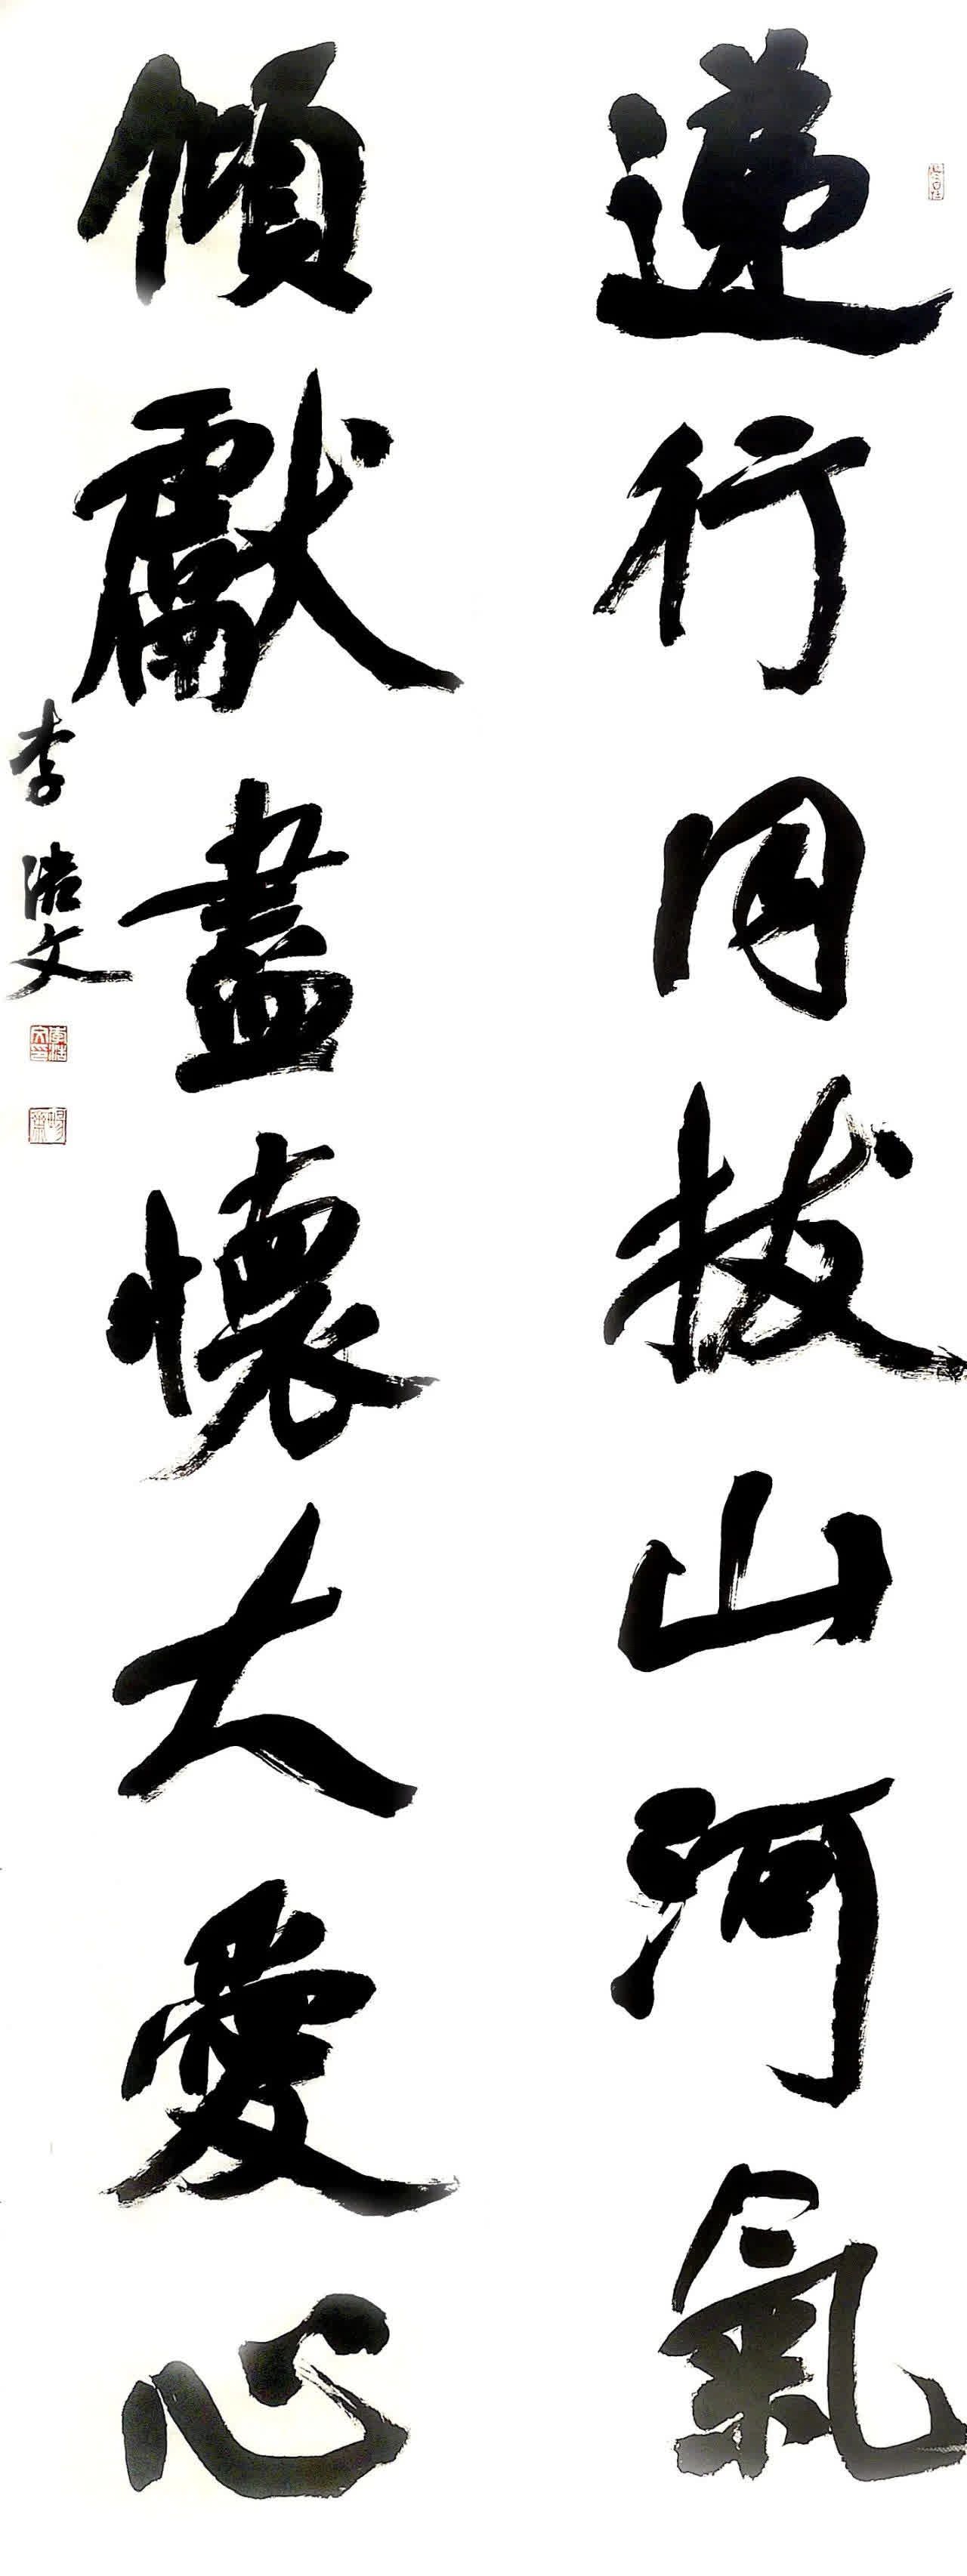 递行用拔山河氣
傾獻盡懷大愛心
李浩文